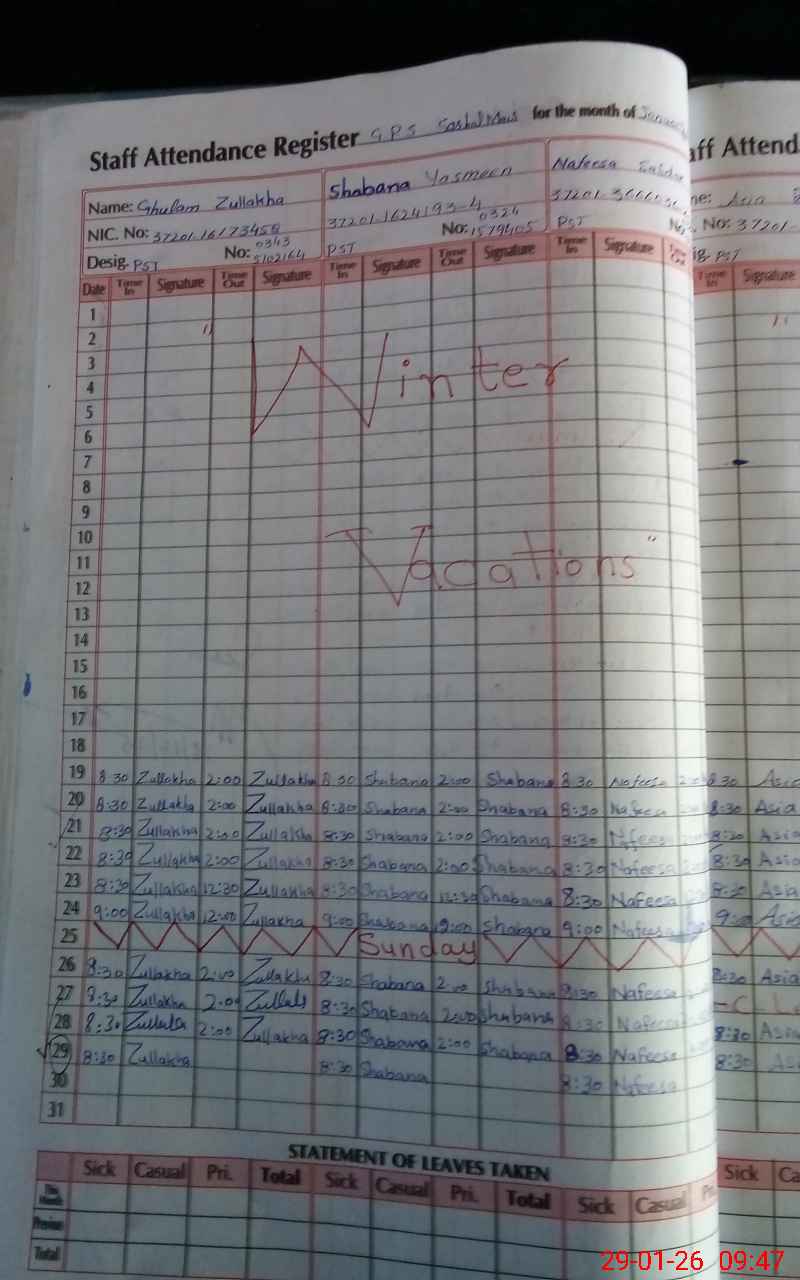 Staff Attendance Register G.P.S for the month of
Name: Ghulam Zullakha
NIC. No: 37201-1617345
Desig. PST No: 0343 5102164
Shabana Yasmeen
37201-1624193-4
PST No: 0324 1579405
Nafeesa
37201-3666
PST
Date Time In Signature Time Out Signature Time In Signature Time Out Signature Time In Signature Time Out
1
2
3
4
5
6
7
8
9
10
11
12
13
14
15
16
17
18
"Winter
Vacations"
19 8:30 Zullakha 2:00 Zullakha 8:30 Shabana 2:00 Shabana 8:30 Nafeesa
20 8:30 Zullakha 2:00 Zullakha 8:30 Shabana 2:00 Shabana 8:30 Nafeesa
21 8:30 Zullakha 2:00 Zullakha 8:30 Shabana 2:00 Shabana 8:30 Nafees
22 8:30 Zullakha 2:00 Zullakha 8:30 Shabana 2:00 Shabana 8:30 Nafeesa
23 8:30 Zullakha 12:30 Zullakha 8:30 Shabana 12:30 Shabana 8:30 Nafeesa
24 9:00 Zullakha 12:00 Zullakha 9:00 Shabana 12:00 Shabana 9:00 Nafeesa
25 Sunday
26 8:30 Zullakha 2:00 Zullakha 8:30 Shabana 2:00 Shabana 8:30 Nafeesa
27 8:30 Zullakha 2:00 8:30 Shabana 2:00 Shabana 8:30 Nafeesa
28 8:30 2:00 Zullakha 8:30 Shabana 2:00 Shabana 8:30 Nafeesa
29 8:30 Zullakha 8:30 Shabana 8:30 Nafeesa
30
31
STATEMENT OF LEAVES TAKEN
Sick Casual Pri. Total Sick Casual Pri. Total Sick Casual
This Month
Previous
Total
aff Attend
me: Asia
No: 37201-
ig. PST
Time In Signature
8:30 Asia
8:30 Asia
8:30 Asia
8:30 Asia
8:30 Asia
9:00 Asia
8:30 Asia
-C L
8:30 Asia
8:30
Sick Ca
29-01-26 09:47